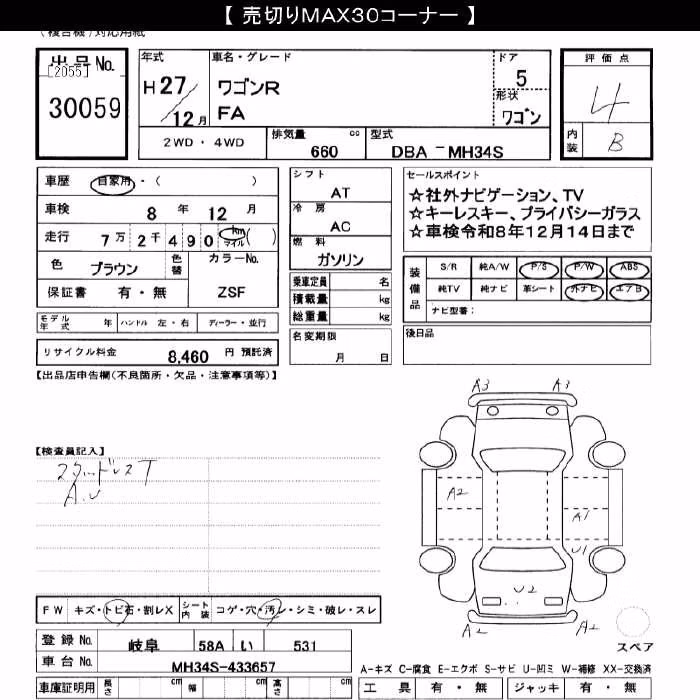 【 売切りMAX30コーナー 】
(複合機)対応用紙
出品No.
[2055]
30059
年式
H27/12月
車名・グレード
ワゴンR
FA
ドア
5
形状
ワゴン
評価点
4
内装
B
2WD・4WD
排気量 cc
660
型式
DBA －MH34S
車歴 自家用・( )
車検 8 年 12 月
走行 7万 2千 4 9 0 km マイル ( )
色 ブラウン 色替
カラーNo.
ZSF
保証書 有・無
シフト
AT
冷房
AC
燃料
ガソリン
乗車定員 名
積載量 kg
総重量 kg
セールスポイント
☆社外ナビゲーション、TV
☆キーレスキー、プライバシーガラス
☆車検令和8年12月14日まで
装備品
S/R 純A/W P/S P/W ABS
純TV 純ナビ 革シート 外ナビ エアB
ナビ型番：
モデル年式 年 ハンドル 左・右 ディーラー・並行
名変期限
月 日
後日品
リサイクル料金 8,460 円 預託済
【出品店申告欄(不良箇所・欠品・注意事項等)】
A3 A3
【検査員記入】
スタッドレスT
A.U
A2
A1
U1
U2
A2 A2
スペア
FW キズ・トビ石・割レX シート内装 コゲ・穴・汚レ・シミ・破レ・スレ
登録No. 岐阜 58A い 531
車台No. MH34S-433657
A－キズ C－腐食 E－エクボ S－サビ U－凹ミ W－補修 XX－交換済
車庫証明用 長さ cm 幅 cm 高さ cm
工具 有・無 ジャッキ 有・無